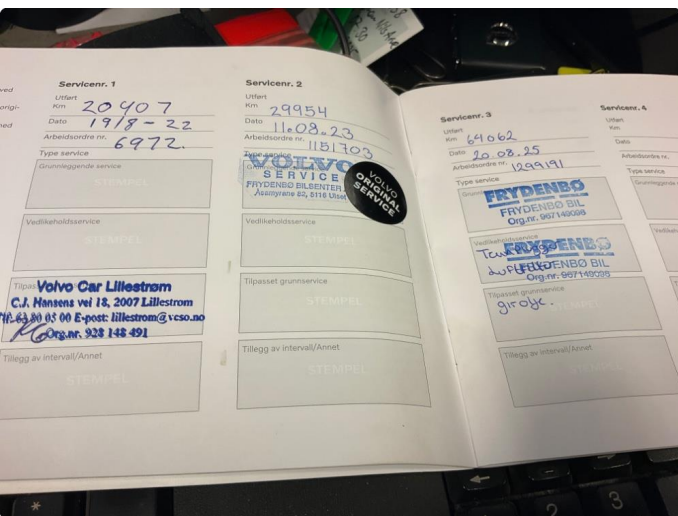 Servicenr. 1
Utført
Km 20407
Dato 19/8-22
Arbeidsordre nr. 6972.
Type service
Grunnleggende service
STEMPEL
Vedlikeholdsservice
STEMPEL
Volvo Car Lillestrøm
C.J. Hansens vei 18, 2007 Lillestrøm
E-post: lillestrom@vcso.no
Org.nr. 928 148 491
Tillegg av intervall/Annet
STEMPEL
Servicenr. 2
Utført
Km 29954
Dato 11.08.23
Arbeidsordre nr. 1151703
Type service
VOLVO
SERVICE
FRYDENBØ BILSENTER
VOLVO
ORIGINAL
SERVICE
Vedlikeholdsservice
STEMPEL
Tilpasset grunnservice
STEMPEL
Tillegg av intervall/Annet
STEMPEL
Servicenr. 3
Utført
Km 64062
Dato 20.08.25
Arbeidsordre nr. 1299191
Type service
FRYDENBØ
FRYDENBØ BIL
Org.nr. 967149098
Vedlikeholdsservice
FRYDENBØ
FRYDENBØ BIL
Org.nr. 967149098
Tilpasset grunnservice
girolje.
Tillegg av intervall/Annet
STEMPEL
Servicenr. 4
Utført
Km
Dato
Arbeidsordre nr.
Type service